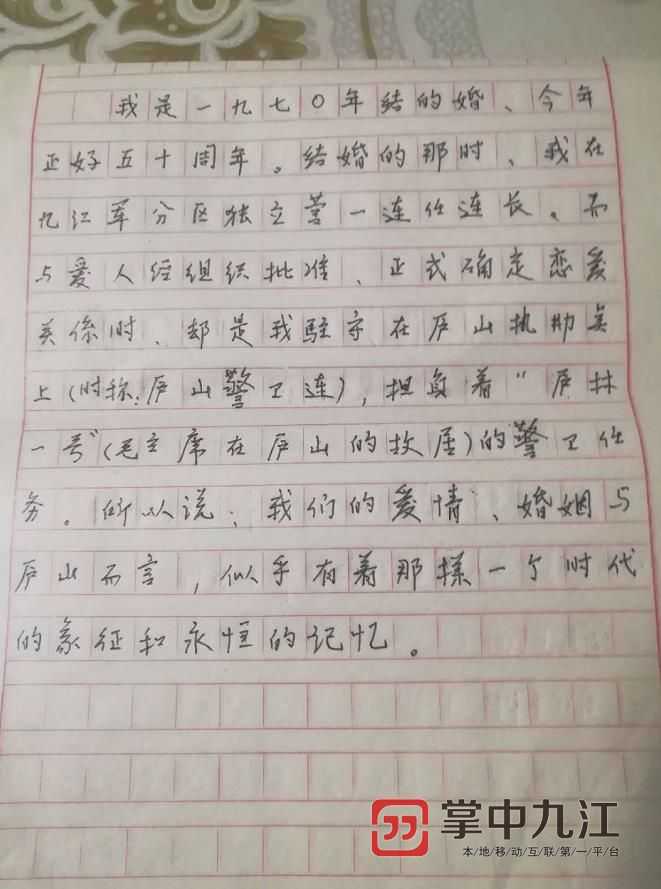 我是一九七〇年结的婚、今年
正好五十周年。结婚的那时、我在
九江军分区独立营一连任连长。而
与爱人经组织批准、正式确定恋爱
关係时、却是我驻守在庐山执勤点
上(时称:庐山警卫连)，担负着"庐林
一号"(毛主席在庐山的故居)的警卫任
务。所以说:我们的爱情、婚姻与
庐山而言，似乎有着那样一个时代
的象征和永恒的记忆。
掌中九江
本/地/移/动/互/联/第/一/平/台